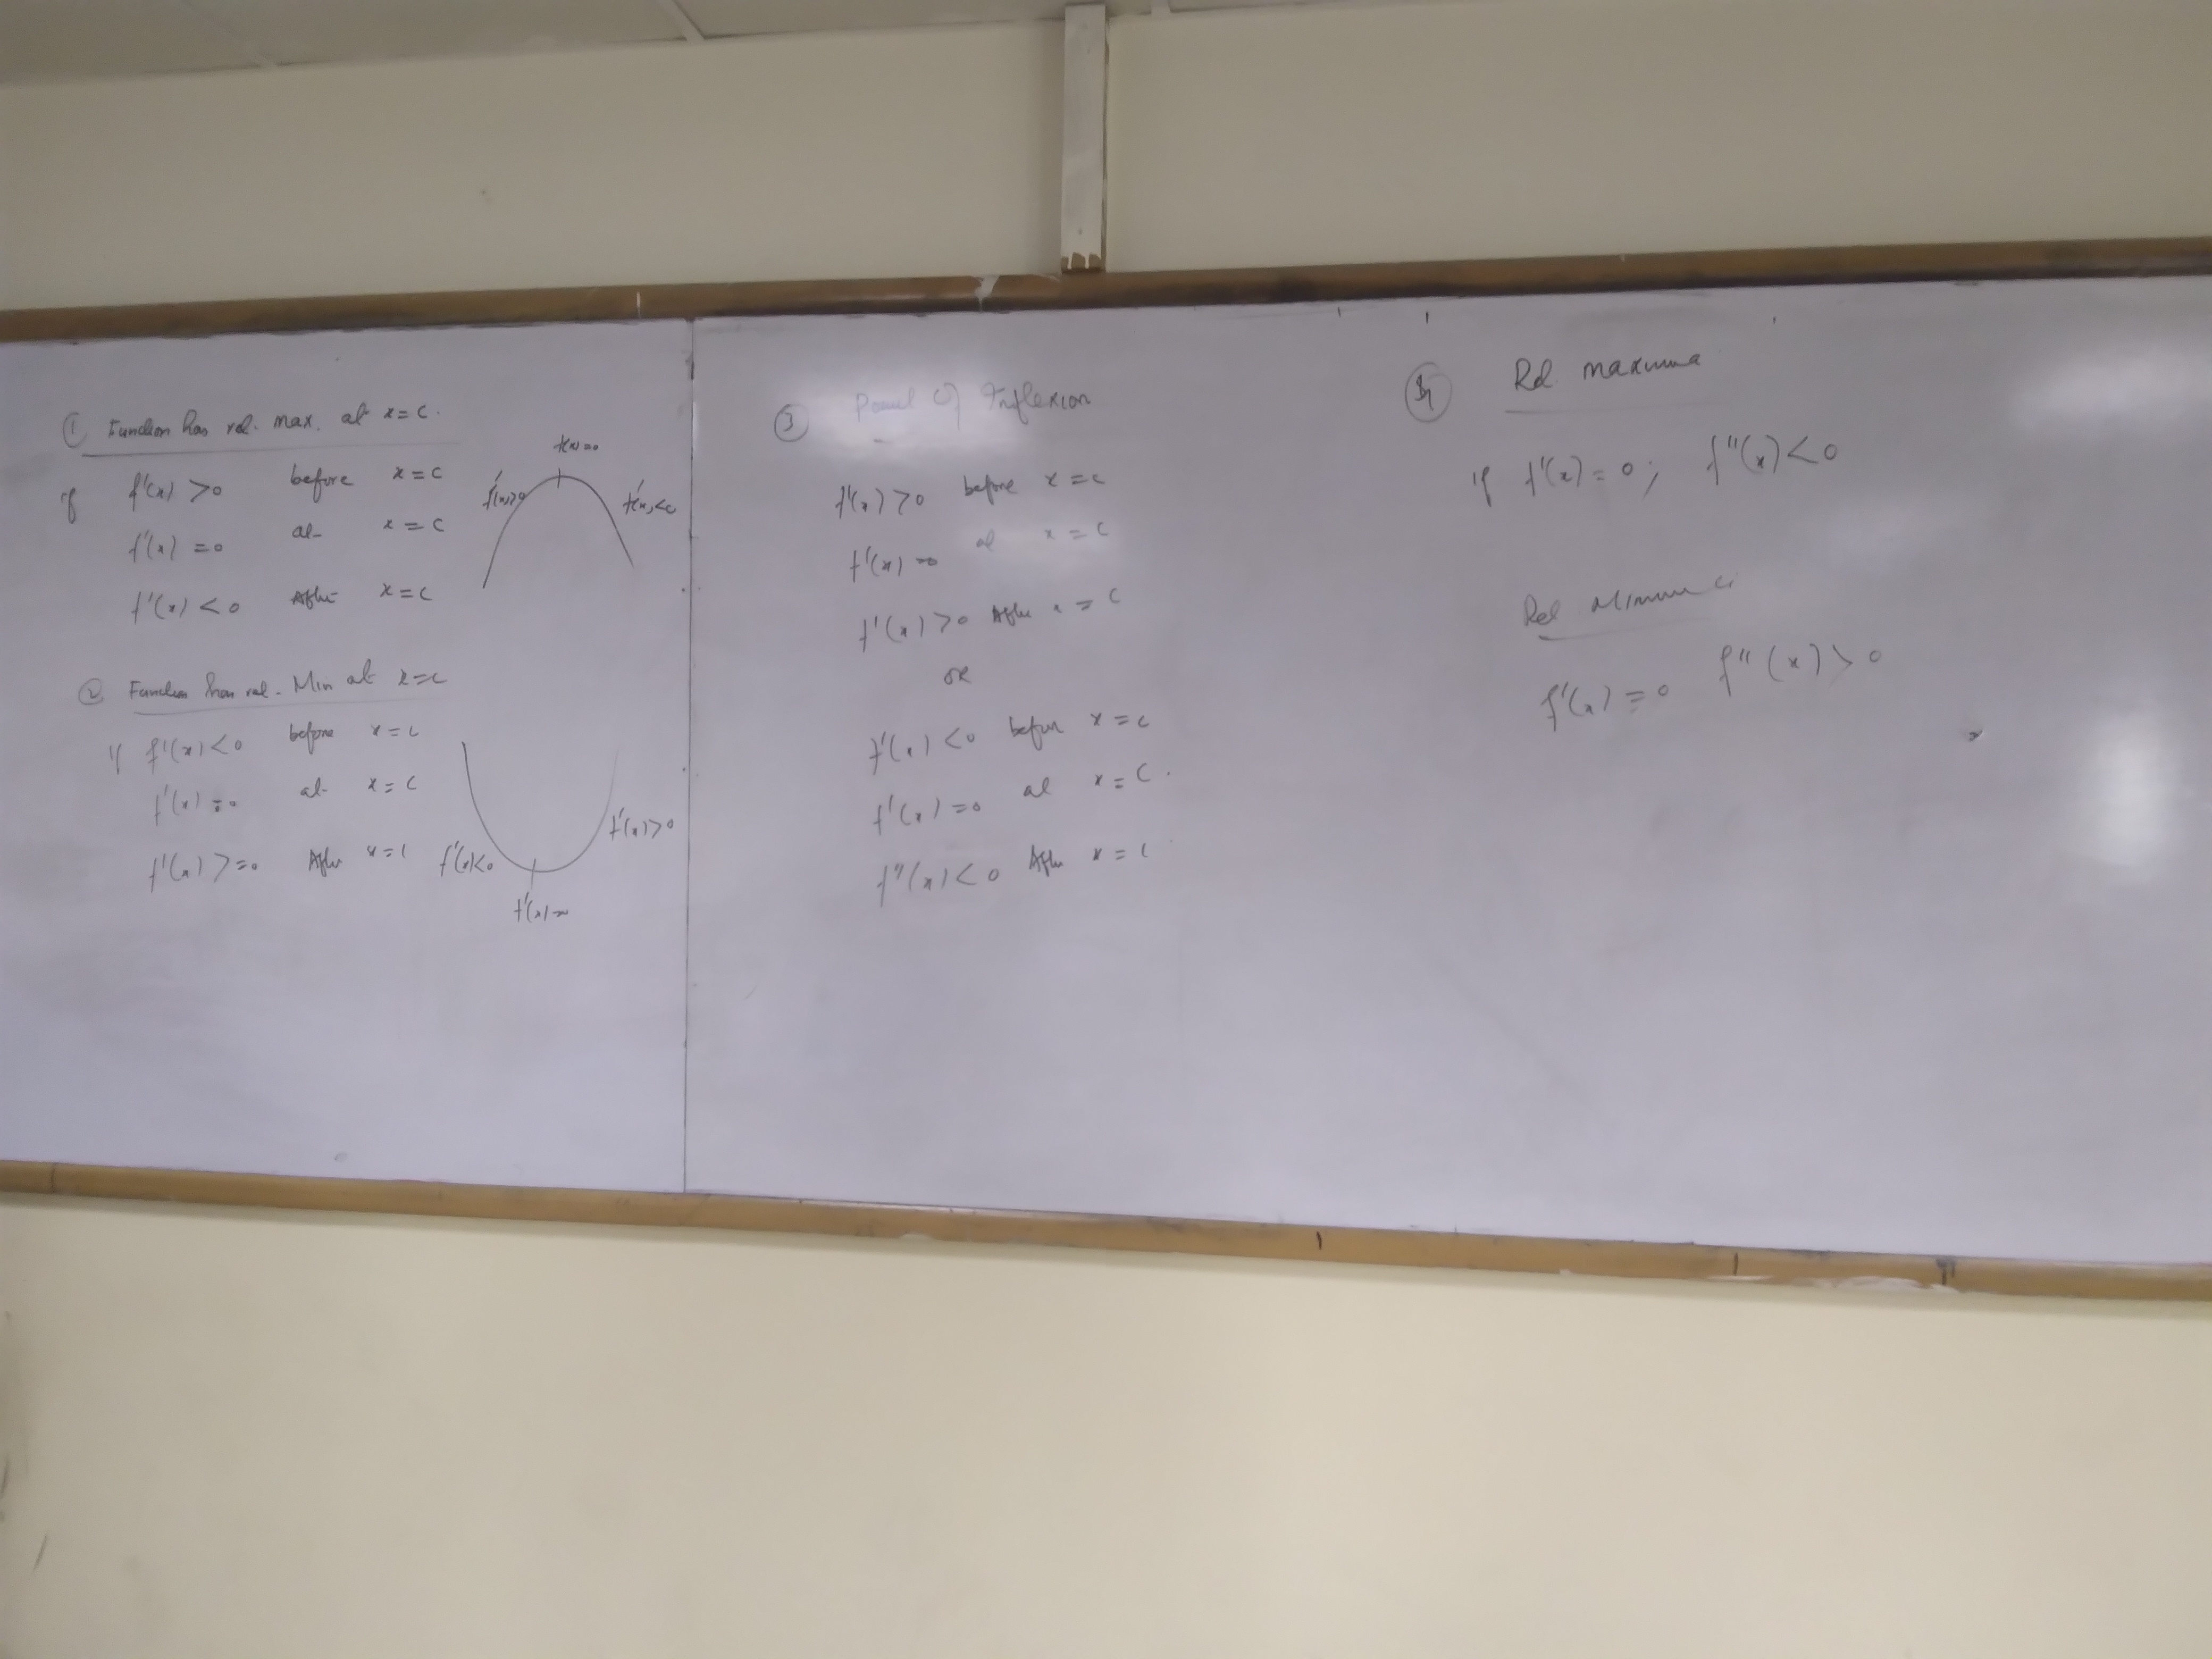 ① Function has rel. max. at x=c.
if f'(x) >0 before x=c
f'(x) =0 at x=c
f'(x) <0 After x=c
f(x)=0
f'(x)>0
f'(x)<0
② Function has rel. Min at x=c
if f'(x)<0 before x=c
f'(x) =0 at x=c
f'(x) >=0 After x=c
f'(x)<0
f'(x)>0
f'(x)=0
③ Point of Inflexion
f'(x) >0 before x=c
f'(x) =0 at x=c
f'(x) >0 After x=c
OR
f'(x) <0 before x=c
f'(x) =0 at x=c.
f"(x)<0 After x=c
Rel maxima
if f'(x)=0; f"(x)<0
Rel Minima
f'(x)=0 f"(x)>0